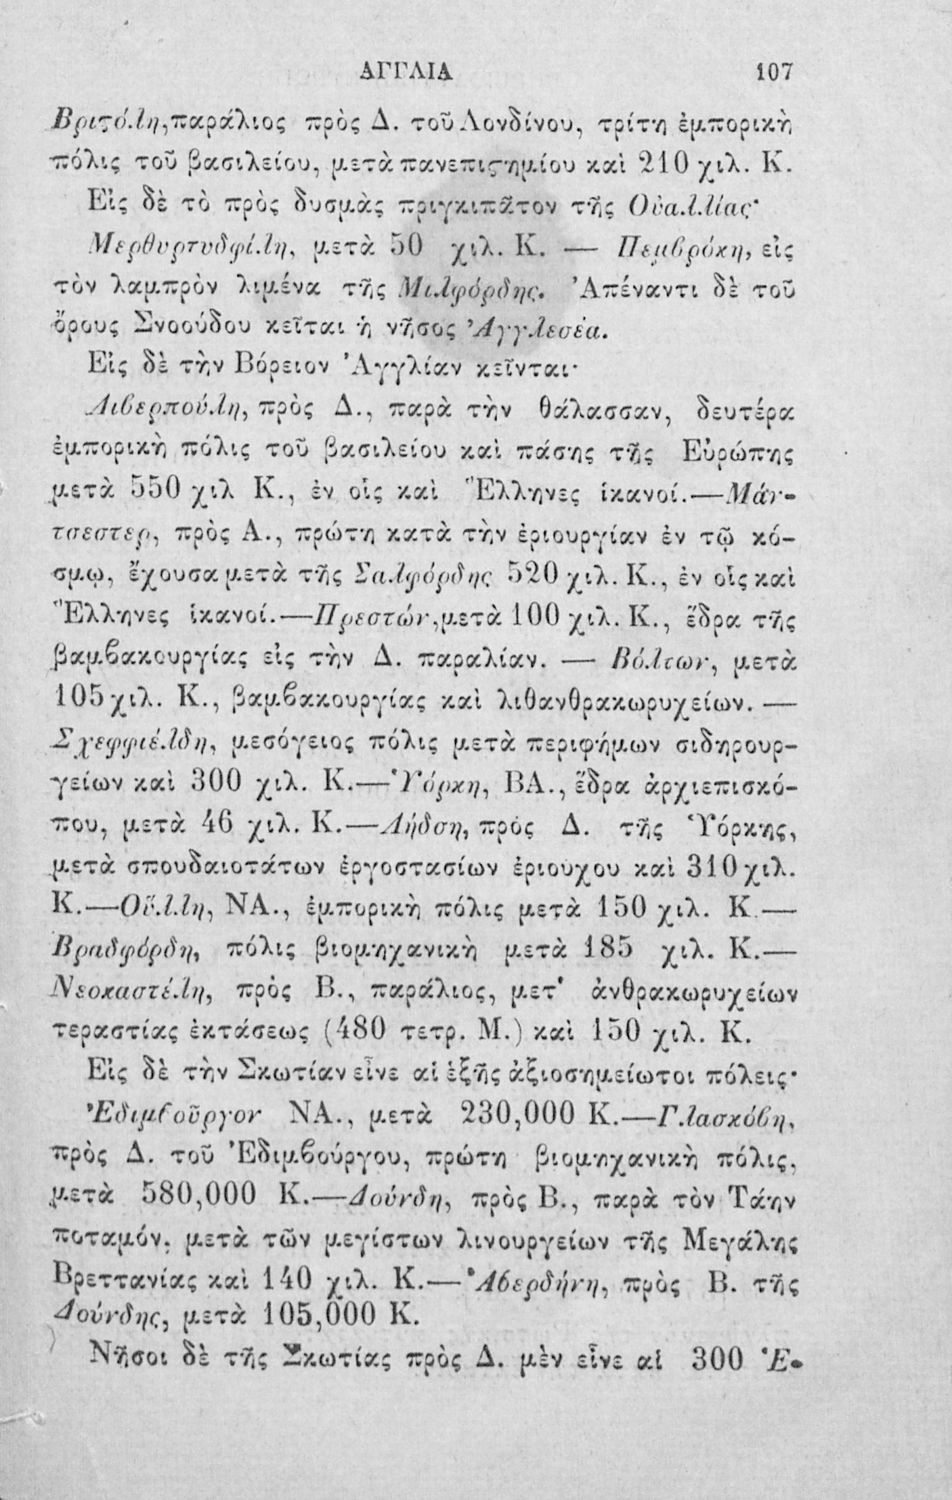 ΑΓΓΛΙΑ 107
Βριϛόλη, παράλιος πρὸς Δ. τοῦ Λονδίνου, τρίτη ἐμπορικὴ
πόλις τοῦ βασιλείου, μετὰ πανεπιϛημίου καὶ 210 χιλ. Κ.
Εἰς δὲ τὸ πρὸς δυσμὰς πριγκιπᾶτον τῆς Οὐαλλίας·
Μερθυρτυδφίλη, μετὰ 50 χιλ. Κ. — Πεμβρόκη, εἰς
τὸν λαμπρὸν λιμένα τῆς Μιλφόρδης. Ἀπέναντι δὲ τοῦ
ὄρους Σνοούδου κεῖται ἡ νῆσος Ἀγγλεσέα.
Εἰς δὲ τὴν Βόρειον Ἀγγλίαν κεῖνται·
Λιβερπούλη, πρὸς Δ., παρὰ τὴν θάλασσαν, δευτέρα
ἐμπορικὴ πόλις τοῦ βασιλείου καὶ πάσης τῆς Εὐρώπης
μετὰ 550 χιλ Κ., ἐν οἷς καὶ Ἕλληνες ἱκανοί.—Μάν-
τσεστερ, πρὸς Α., πρώτη κατὰ τὴν ἐριουργίαν ἐν τῷ κό-
σμῳ, ἔχουσα μετὰ τῆς Σαλφόρδης 520 χιλ. Κ., ἐν οἷς καὶ
Ἕλληνες ἱκανοί.—Πρεστών, μετὰ 100 χιλ. Κ., ἕδρα τῆς
βαμβακουργίας εἰς τὴν Δ. παραλίαν. — Βόλτων, μετὰ
105 χιλ. Κ., βαμβακουργίας καὶ λιθανθρακωρυχείων. —
Σχεφφιέλδη, μεσόγειος πόλις μετὰ περιφήμων σιδηρουρ-
γείων καὶ 300 χιλ. Κ.—Ὑόρκη, ΒΑ., ἕδρα ἀρχιεπισκό-
που, μετὰ 46 χιλ. Κ.—Λήδση, πρὸς Δ. τῆς Ὑόρκης,
μετὰ σπουδαιοτάτων ἐργοστασίων ἐριούχου καὶ 310 χιλ.
Κ.—Οὔλλη, ΝΑ., ἐμπορικὴ πόλις μετὰ 150 χιλ. Κ.—
Βραδφόρδη, πόλις βιομηχανικὴ μετὰ 185 χιλ. Κ.—
Νεοκαστέλη, πρὸς Β., παράλιος, μετ' ἀνθρακωρυχείων
τεραστίας ἐκτάσεως (480 τετρ. Μ.) καὶ 150 χιλ. Κ.
Εἰς δὲ τὴν Σκωτίαν εἶνε αἱ ἑξῆς ἀξιοσημείωτοι πόλεις·
Ἐδιμβοῦργον ΝΑ., μετὰ 230,000 Κ.—Γλασκόβη,
πρὸς Δ. τοῦ Ἐδιμβούργου, πρώτη βιομηχανικὴ πόλις,
μετὰ 580,000 Κ.—Δούνδη, πρὸς Β., παρὰ τὸν Τάην
ποταμόν, μετὰ τῶν μεγίστων λινουργείων τῆς Μεγάλης
Βρεττανίας καὶ 140 χιλ. Κ.—Ἀβερδήνη, πρὸς Β. τῆς
Δούνδης, μετὰ 105,000 Κ.
Νῆσοι δὲ τῆς Σκωτίας πρὸς Δ. μὲν εἶνε αἱ 300 Ἑ-